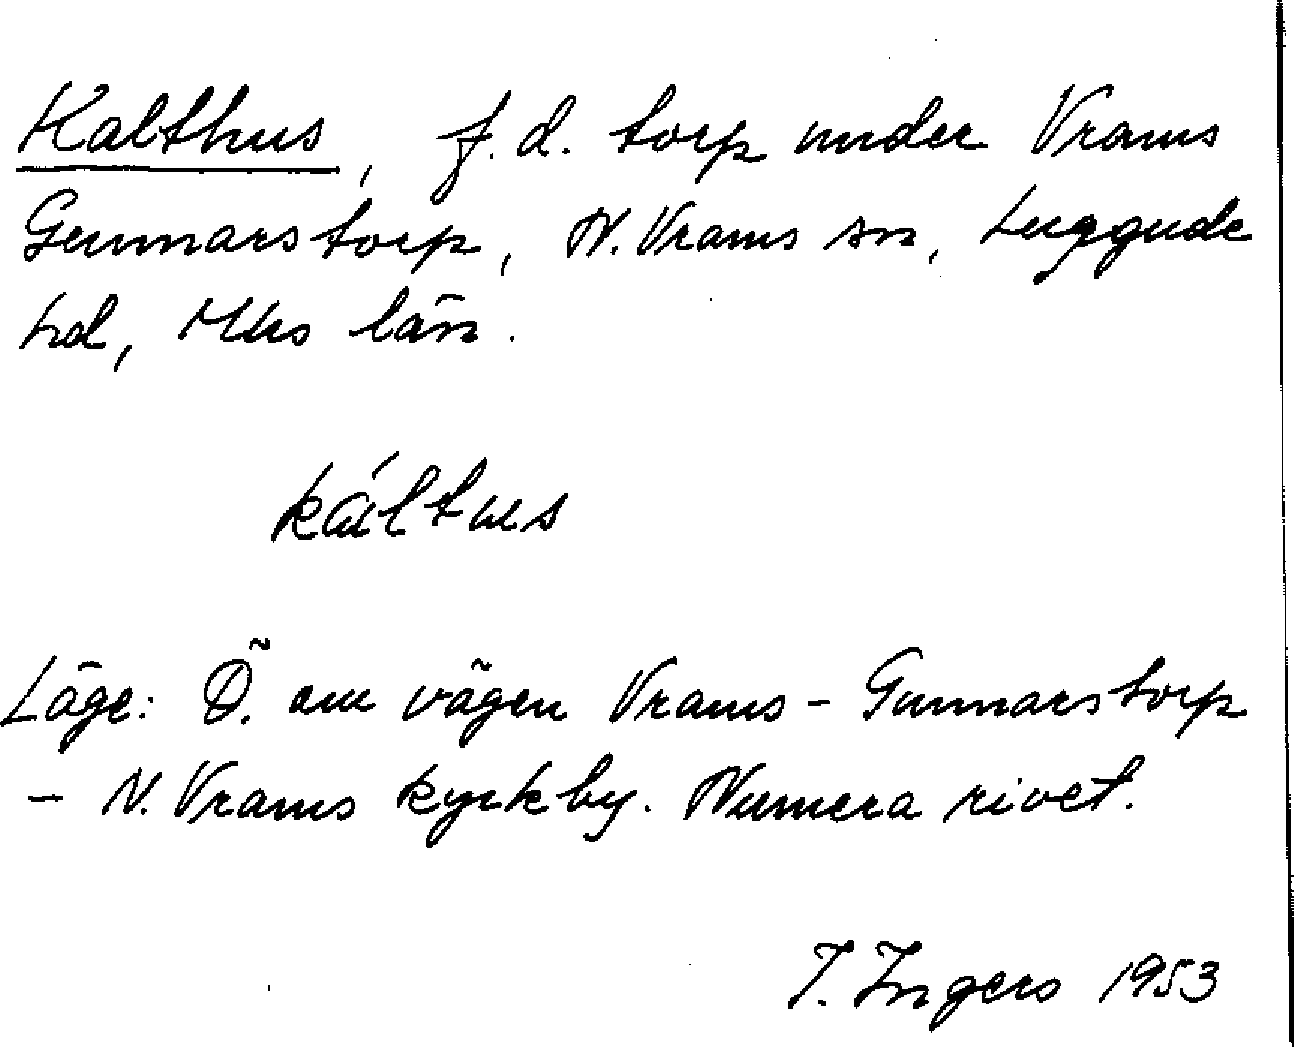 Kalthus, f.d. torp under Vrams
Gunnarstorp, N. Vrams sn, Luggude
hd, Mhs län.
káltus
Läge: Ö. om vägen Vrams-Gunnarstorp
- N. Vrams kyrkby. Numera rivet.
I. Ingers 1953